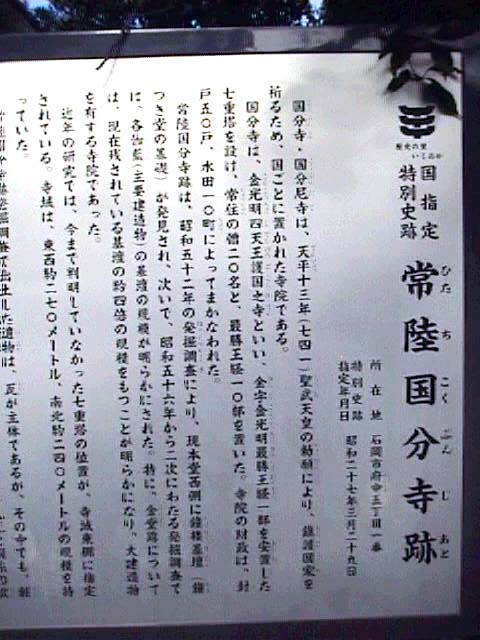 歴史の里
いしおか
国指定
特別史跡
常陸国分寺跡
ひたちこくぶんじあと
所在地 石岡市府中五丁目一番
特別史跡
指定年月日 昭和二十七年三月二十九日
国分寺・国分尼寺は、天平十三年(七四一)聖武天皇の勅願により、鎮護国家を
祈るため、国ごとに置かれた寺院である。
国分寺は、金光明四天王護国之寺といい、金字金光明最勝王経一部を安置した
七重塔を設け、常住の僧二〇名と、最勝王経一〇部を置いた。寺院の財政は、封
戸五〇戸、水田一〇町によってまかなわれた。
常陸国分寺跡は、昭和五十二年の発掘調査により、現本堂西側に鐘楼基壇(鐘
つき堂の基礎)が発見され、次いで、昭和五十六年から二次にわたる発掘調査で
は、各伽藍(主要建造物)の基壇の規模が明らかにされた。特に、金堂跡について
は、現在残されている基壇の約四倍の規模をもつことが明らかになり、大建造物
を有する寺院であった。
近年の研究では、今まで判明していなかった七重塔の位置が、寺域東側に推定
されている。寺域は、東西約二七〇メートル、南北約二四〇メートルの規模を持
っていた。
遺物は、瓦が主体であるが、その中でも、